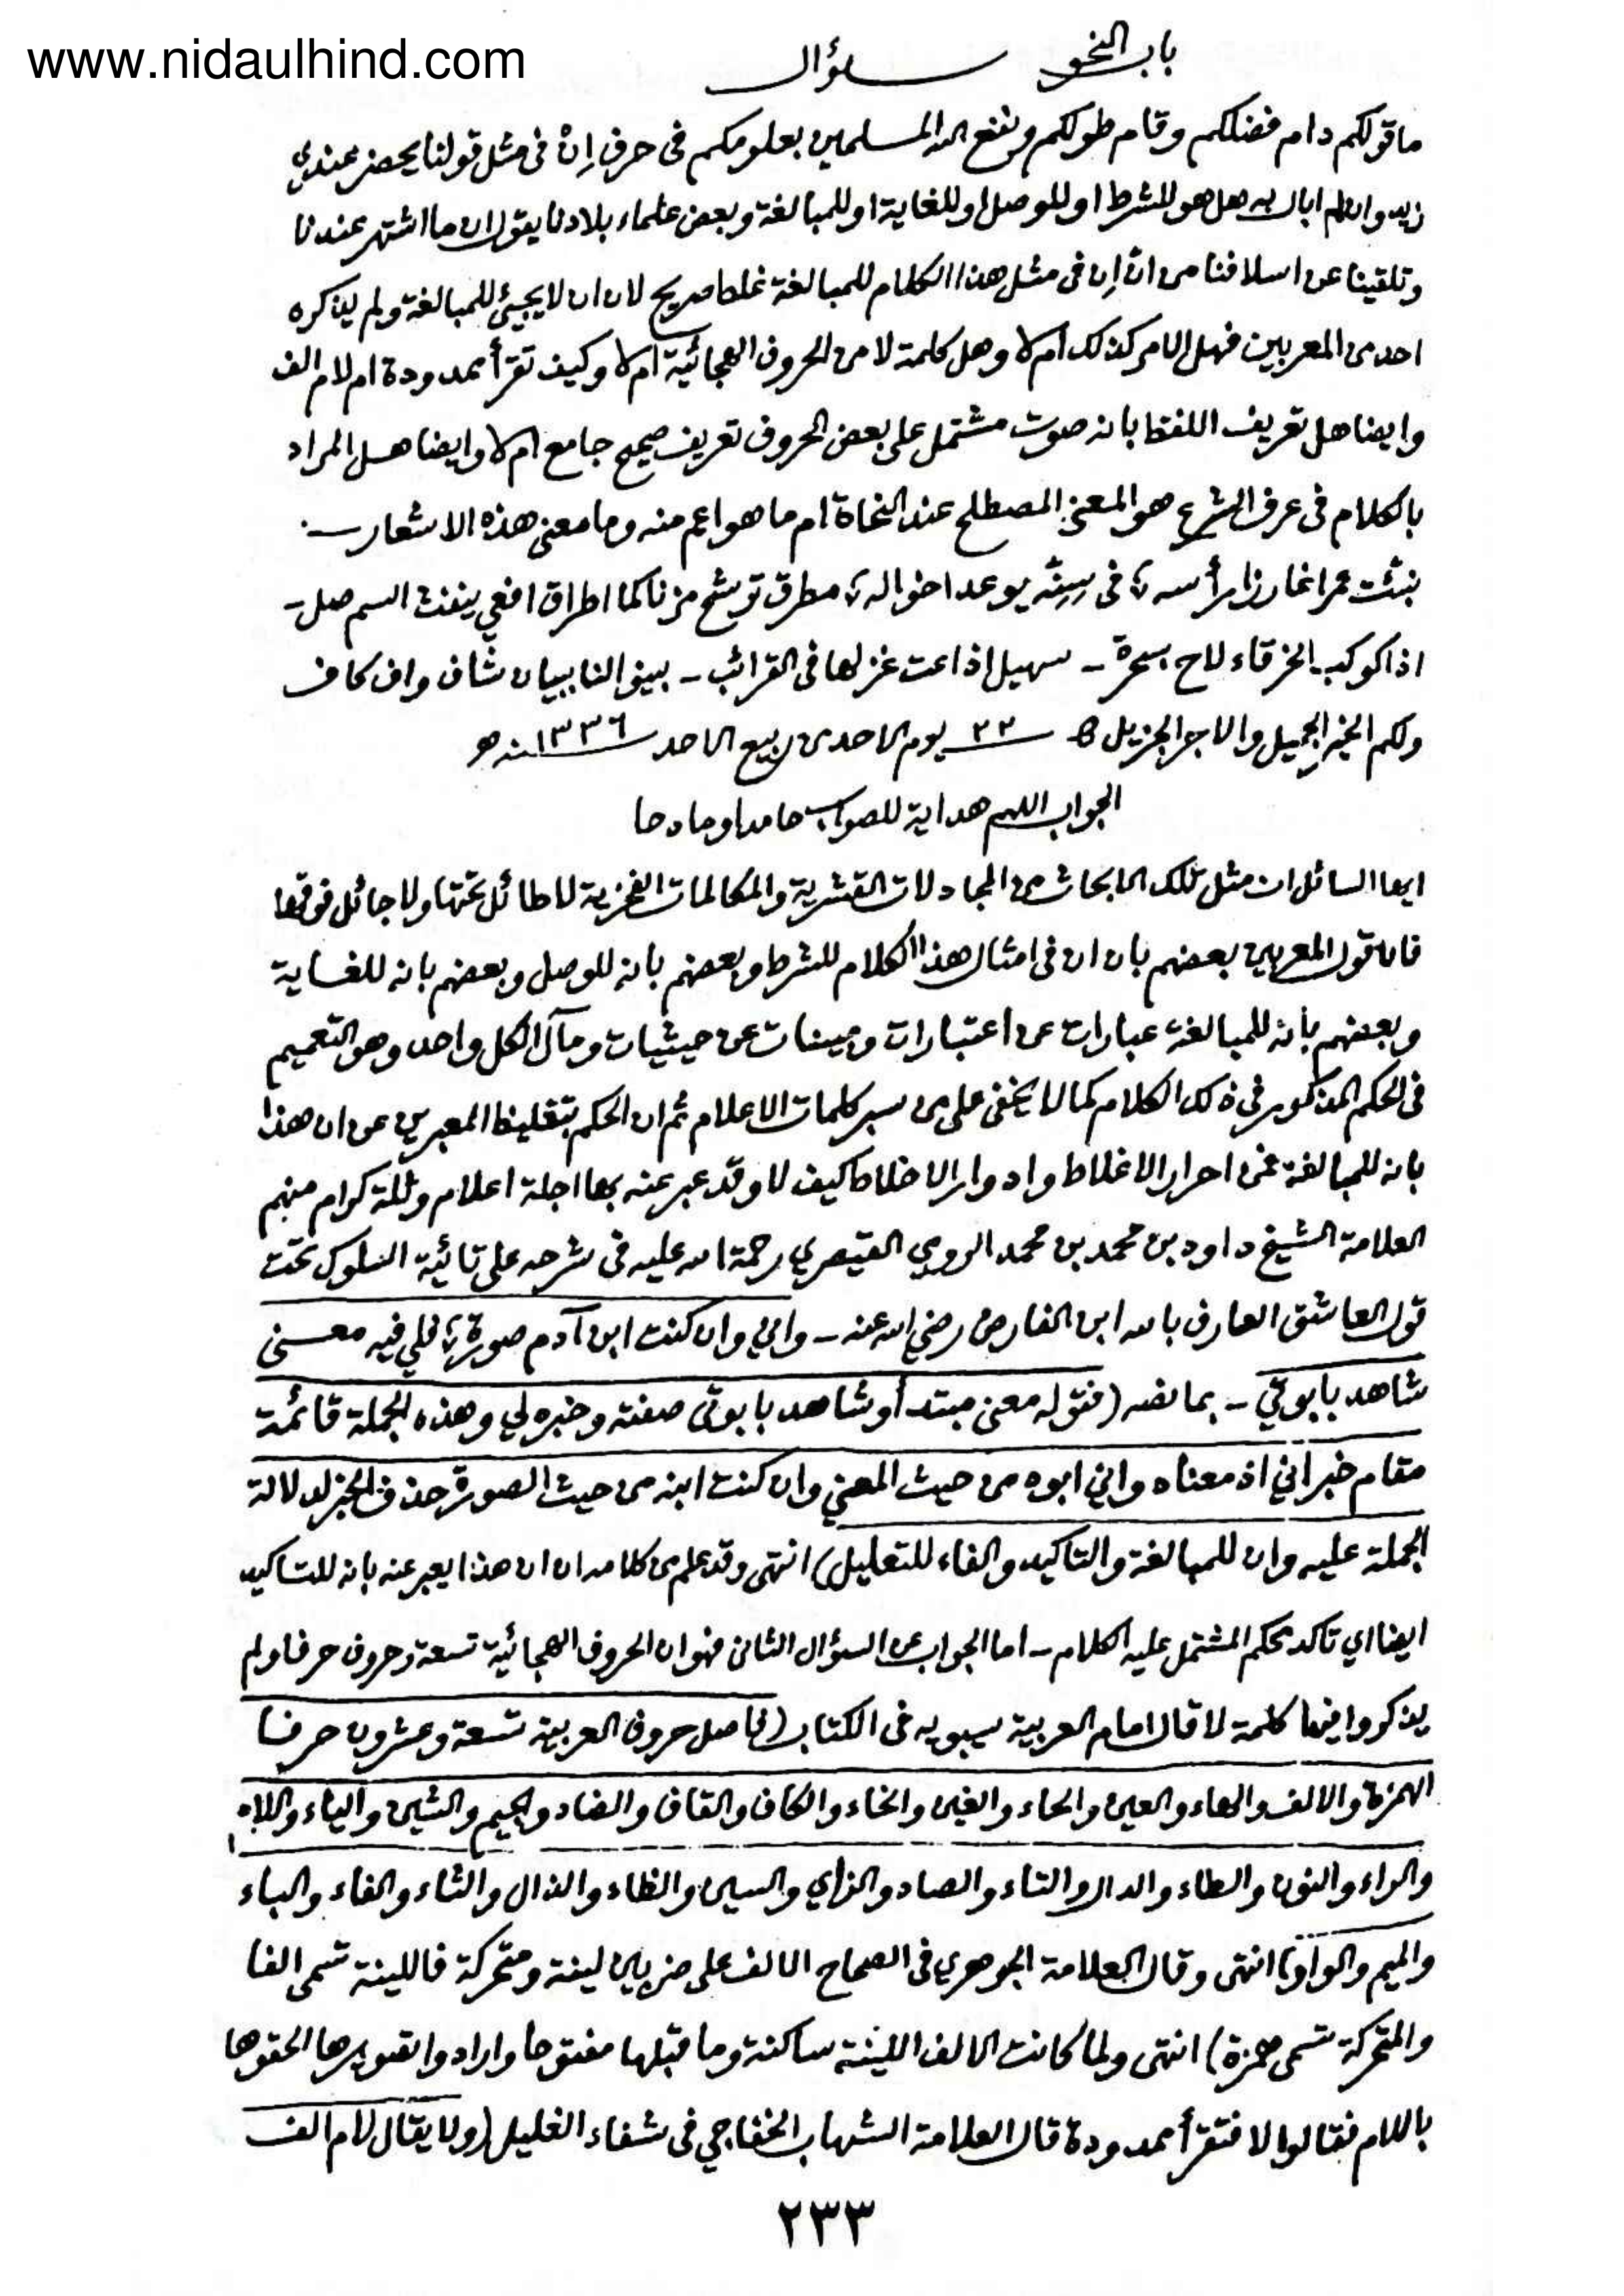 www.nidaulhind.com
باب النحو سؤال
ما قولكم دام فضلكم وقام طولكم ونفع الله المسلمين بعلومكم فى حرف إن فى مثل قولنا يحضر عندي
زيد وان لم ابال به هل هو للشرط او للوصل او للغاية او للمبالغة وبعض علماء بلادنا يقول ان ما اشتهر عندنا
وتلقينا عن اسلافنا من انّ إن فى مثل هذا الكلام للمبالغة غلط صريح لان ان لا يجيئ للمبالغة ولم يذكره
احد من المعربين فهل الامر كذلك ام لا وهل كلمة لا من الحروف الهجائية ام لا وكيف تقرأ ممدودة ام لام الف
وايضا هل تعريف اللفظ بانه صوت مشتمل على بعض الحروف تعريف صحيح جامع ام لا وايضا هل المراد
بالكلام فى عرف الشرع هو المعنى المصطلح عند النحاة ام ما هو اعم منه وما معنى هذه الاشعار
نبئت عمرا غارزا رأسه ، فى سِنِة يوعد اخواله ، مطرق ترشح مزنا كما اطراق افعي ينفث السم صل -
اذا كوكب الخرقاء لاح بسحرة - سهيل اذاعت غزلها فى القرائب - بينوا لنا ببيان شاف واف كاف
ولكم الخير الجميل والاجر الجزيل ٢٣ يوم الاحد من ربيع الاحد ١٣٣٦ سنه هـ
الجواب اللهم هداية للصواب حامدا ومادحا
ايها السائل ان مثل تلك الابحاث من المجادلات القشرية والمكالمات الفخرية لا طائل تحتها ولا جائل فوقها
فان قول المعربين بعضهم بان ان فى امثال هذا الكلام للشرط وبعضهم بانه للوصل وبعضهم بانه للغاية
وبعضهم بأنه للمبالغة عبارات عن اعتبارات ومبينات عن حيثيات ومآل الكل واحد وهو التعميم
فى الحكم المذكور فى ذلك الكلام كما لا يخفى على من سبر كلمات الاعلام ثم ان الحكم بتغليط المعبرين عن ان هذا
بانه للمبالغة من احرار الاغلاط وادوار الاخلاط كيف لا وقد عبر عنه بها اجلة اعلام وثلة كرام منهم
العلامة الشيخ داود بن محمد بن محمد الرومي القيصري رحمة الله عليه فى شرحه على تائية السلوك تحت
قول العاشق العارف بالله ابن الفارض رضي الله عنه - واني وان كنت ابن آدم صورة ، فلي فيه معنى
شاهد بابوتي - بما نصه (فقوله معنى مبتدأ وشاهد بابوتى صفته وخبره لي وهذه الجملة قائمة
مقام خبر اني اذ معناه واني ابوه من حيث المعنى وان كنت ابنه من حيث الصورة حذف الخبر لدلالة
الجملة عليه وان للمبالغة والتاكيد والفاء للتعليل) انتهى وقد علم من كلامه ان ان هذا يعبر عنه بانه للتاكيد
ايضا اي تاكد حكم المشتمل عليه الكلام - اما الجواب عن السؤال الثانى فهو ان الحروف الهجائية تسعة وحروف حرفا ولم
يذكروا فيها كلمة لا قال امام العربية سيبويه فى الكتاب (فاصل حروف العربية تسعة وعشرون حرفا
الهمزة والالف والهاء والعين والحاء والغين والخاء والكاف والقاف والضاد والجيم والشين والياء واللام
والراء والنون والطاء والدال والتاء والصاد والزاي والسين والظاء والذال والثاء والفاء والباء
والميم والواو) انتهى وقال العلامة الجوهري فى الصحاح الالف على ضربين لينة ومتحركة فاللينة تسمى الفا
والمتحركة تسمى همزة) انتهى ولما كانت الالف اللينة ساكنة وما قبلها مفتوحا وارادوا تصويرها الحقوها
باللام فقالوا لا فتقرأ ممدودة قال العلامة الشهاب الخفاجي فى شفاء الغليل (ولا يقال لام الف
٢٣٣